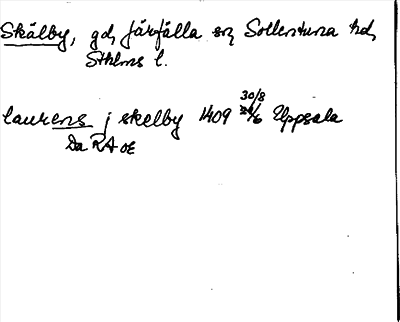 Skälby, gd, Järfälla sn, Sollentuna hd,
Sthlms l.
30/8
laurens j skelby 1409 Uppsala
Da RA oe